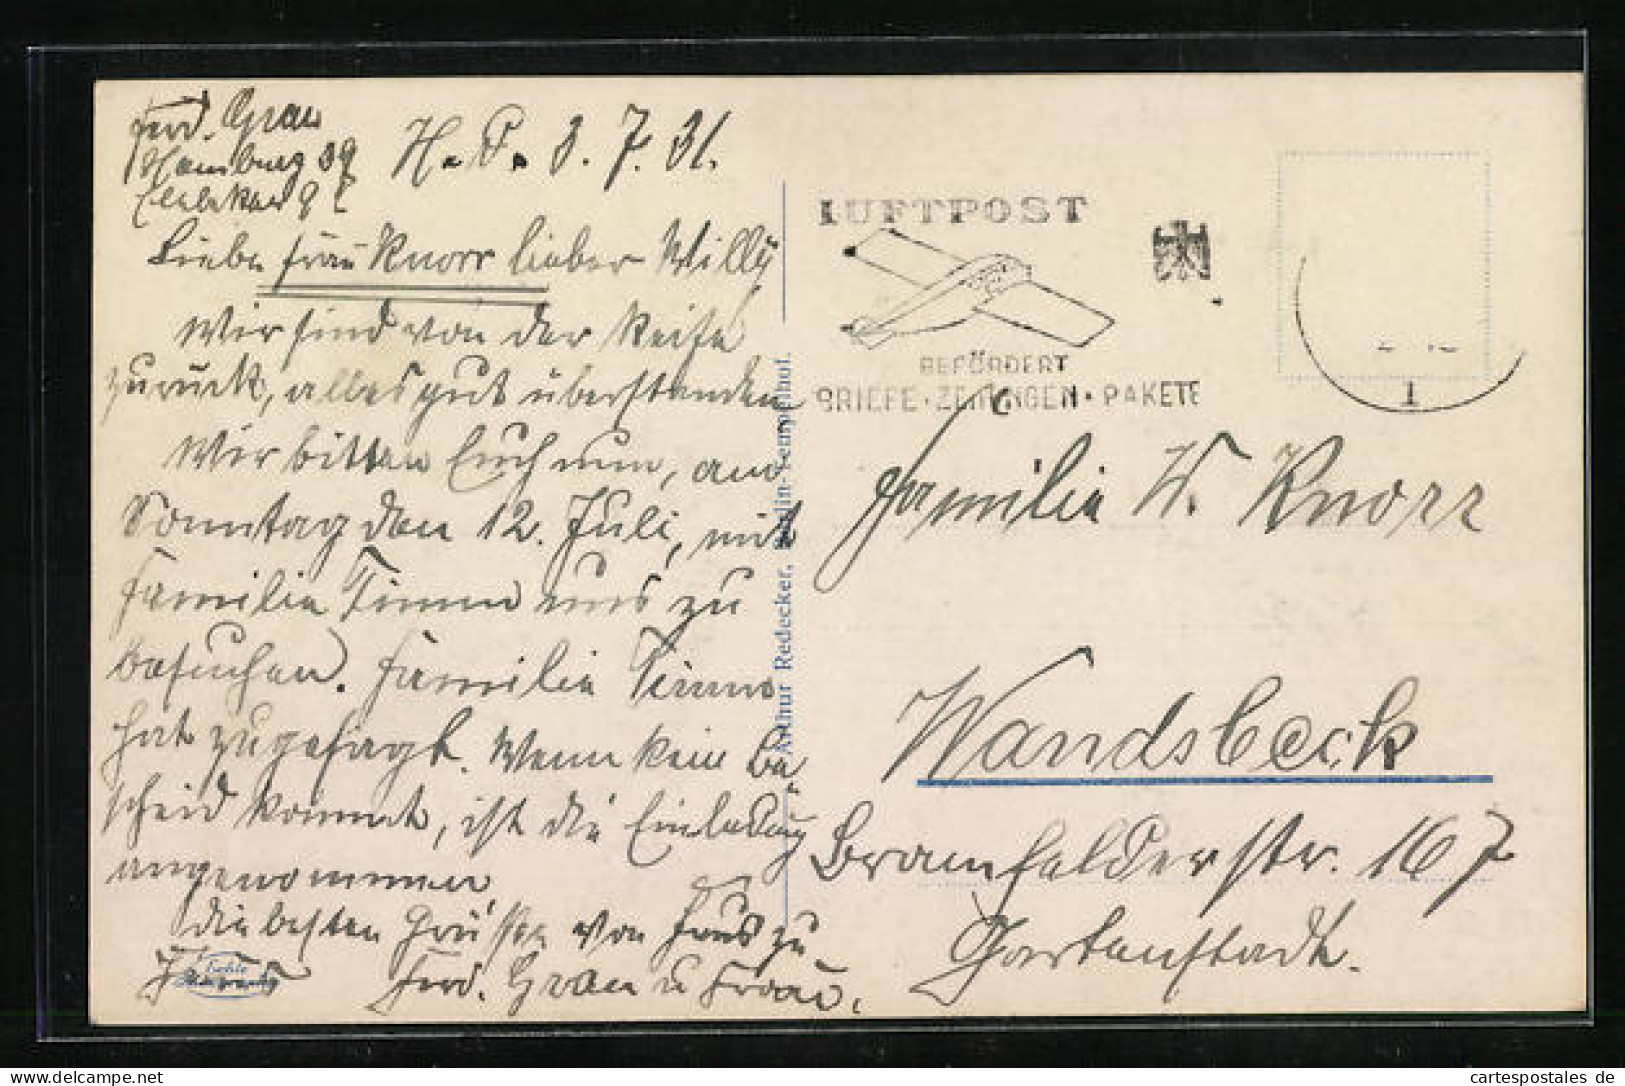 Ferd. Grau
Hamburg 39
H. P. 3. 7. 31.
Liebe Frau Knorr lieber Willy
Wir sind von der Reise
zurück, alles gut überstanden
Wir bitten Euch nun, am
Sonntag den 12. Juli, mit
Familie Timm uns zu
besuchen. Familie Timm
hat zugesagt. Wenn kein Be
scheid kommt, ist die Einladung
angenommen,
die besten Grüsse von Haus zu
Haus Ferd. Grau u Frau.
Arthur Redecker, Berlin-Tempelhof.
LUFTPOST
BEFÖRDERT
BRIEFE · ZEITUNGEN · PAKETE
1
Familie W. Knorr
Wandsbeck
Bramfelderstr. 167
Gartenstadt.
cartespostales de